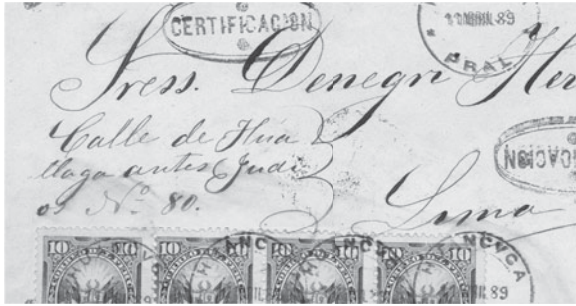 CERTIFICACION
11 ABRIL 89
PRAL
Sres. Denegri Her
Calle de Hua
llaga antes Judi
os Nº 80.
ICACION
Lima
10 10 10 10 10 10 10
ANC NCVCA
89